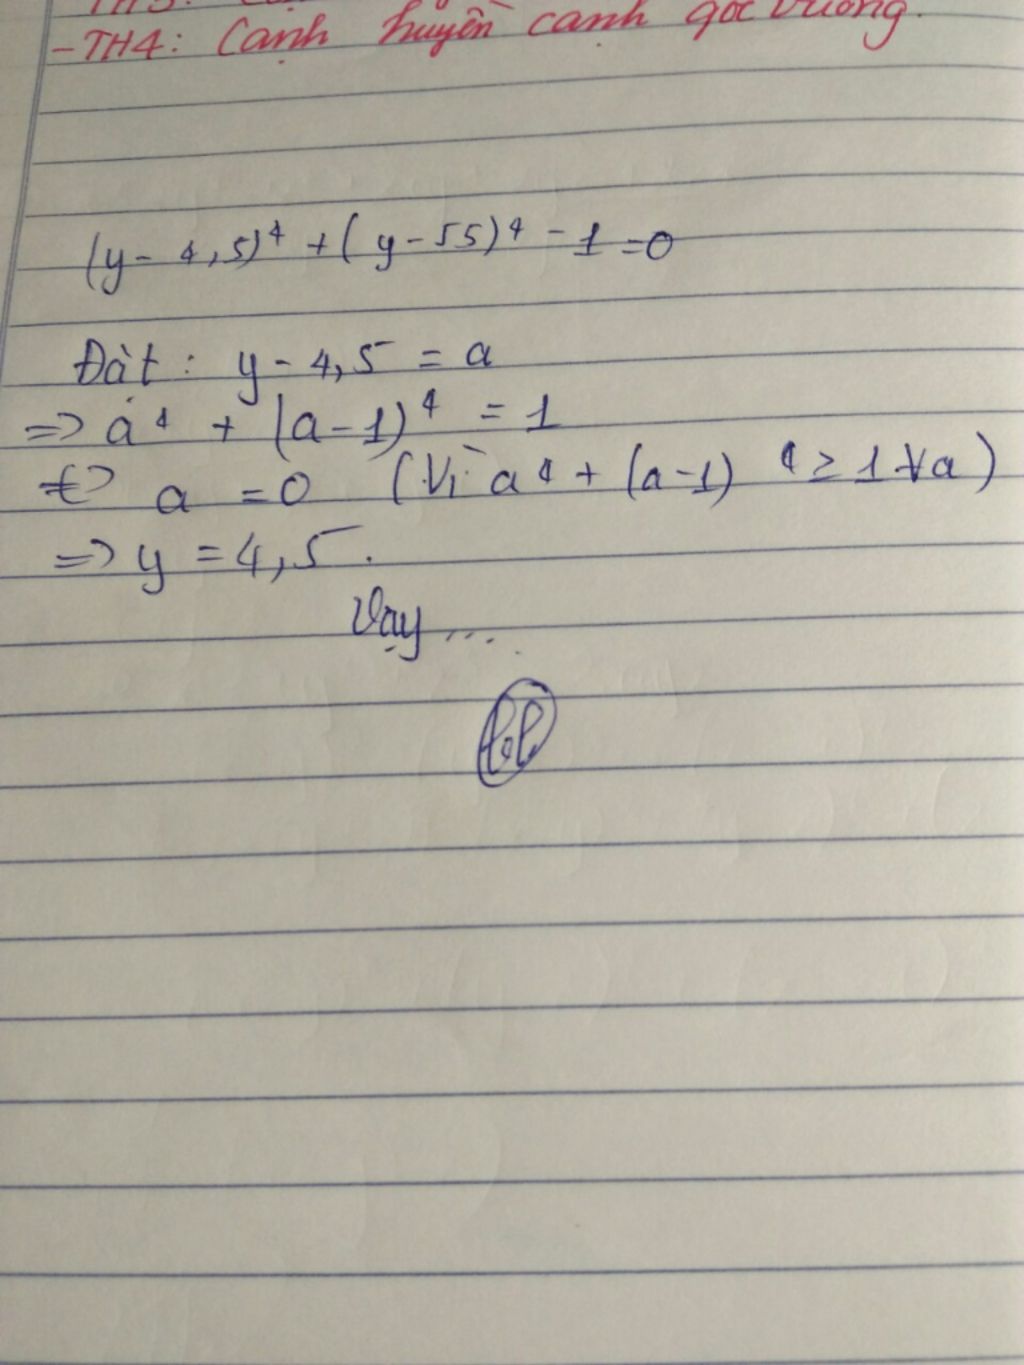 -TH4: Cạnh huyền cạnh góc vuông.
(y - 4,5)⁴ + (y - 55)⁴ - 1 = 0
Đặt: y - 4,5 = a
=> a⁴ + (a - 1)⁴ = 1
<=> a = 0 (Vì a⁴ + (a - 1)⁴ ≥ 1 ∀a)
=> y = 4,5.
Vạy ...